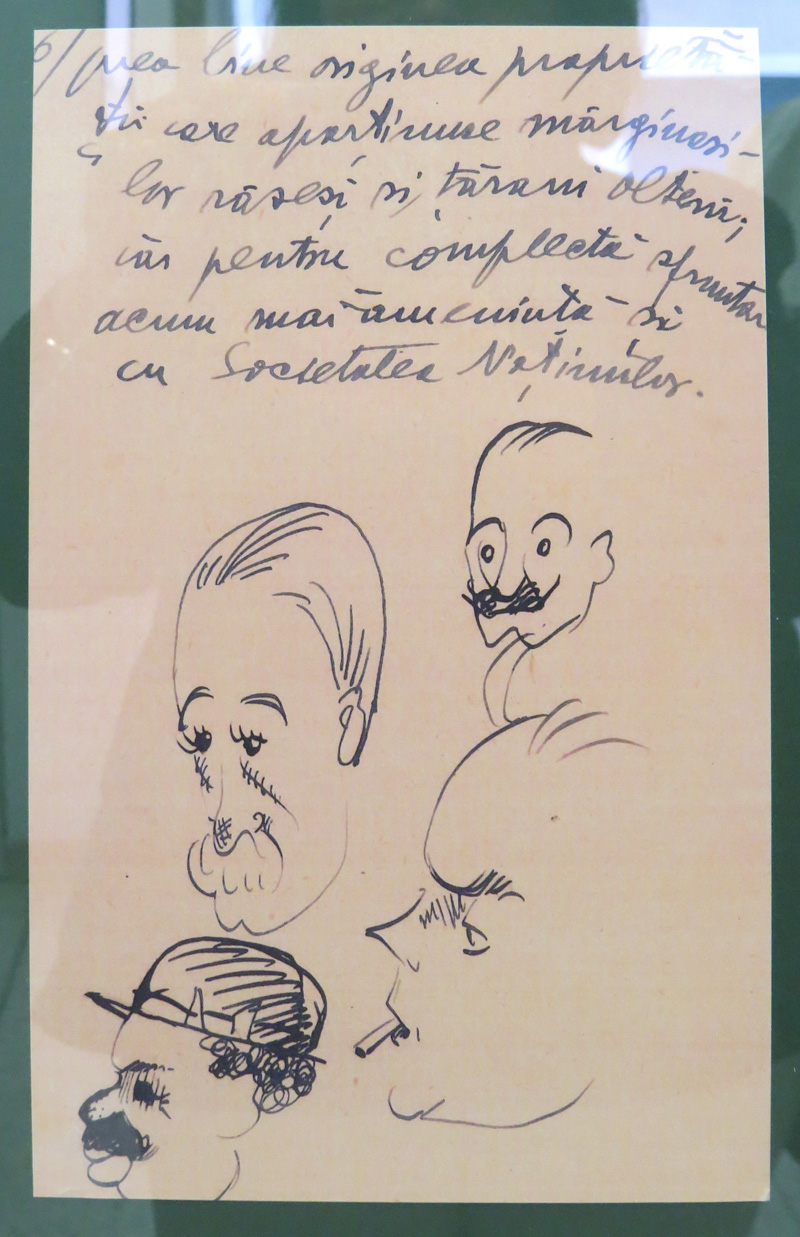 6/ prea bine originea proprietă-
ții care aparținuse mărginași-
lor răzeși și țărani olteni;
iar pentru complectă sfruntar
acum mai amenință și
cu Societatea Națiunilor.